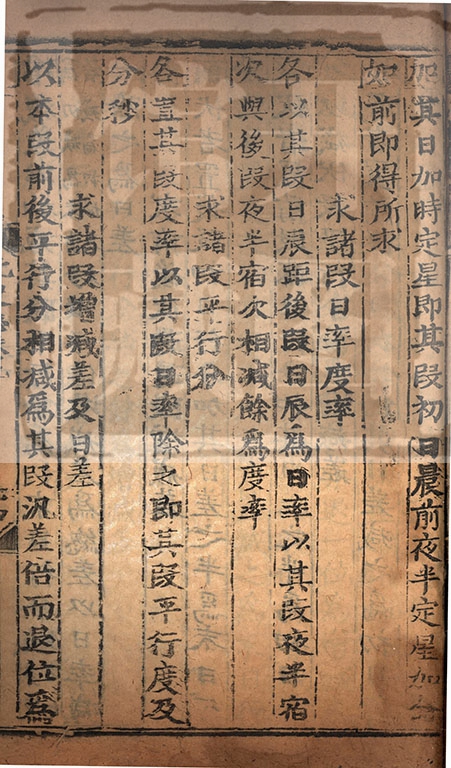 加其日加時定星即其段初日晨前夜半定星
如前即得所求
求諸段日率度率
各以其段日辰距後段日辰爲日率以其段夜半宿
次與後段夜半宿次相減餘爲度率
求諸段平行分
各置其段度率以其段日率除之即其段平行度及
分秒
求諸段增減差及日差
以本段前後平行分相減爲其段汎差倍而退位爲